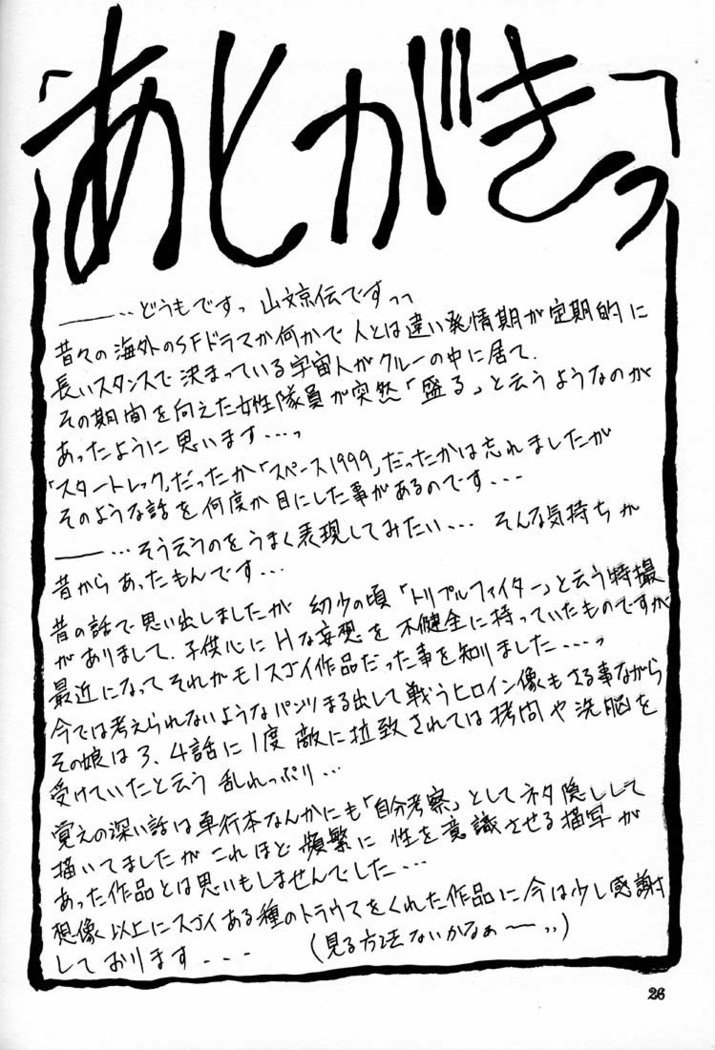 あとがきっ
――‥どうもですっ 山文京伝ですっっ
昔々の海外のSFドラマか何かで人とは違い発情期が定期的に
長いスタンスで決まっている宇宙人がクルーの中に居て、
その期間を向えた女性隊員が突然「盛る」と云うようなのが
あったように思います・・・っ
「スタートレック」だったか「スペース1999」だったかは忘れましたが
そのような話を何度か目にした事があるのです・・・
――・・・そう云うのをうまく表現してみたい・・・ そんな気持ちが
昔からあったもんです・・・
昔の話で思い出しましたが 幼少の頃「トリプルファイター」と云う特撮
がありまして、子供心にHな妄想を不健全に持っていたものですが
最近になってそれがモノスゴイ作品だった事を知りました・・・・っ
今では考えられないようなパンツまる出しで戦うヒロイン像もさる事ながら
その娘は3、4話に1度 敵に拉致されては拷問や洗脳を
受けていたと云う乱れっぷり・・・
覚えの深い話は単行本なんかにも「自分考察」としてネタ隠しして
描いてましたが これほど頻繁に性を意識させる描写が
あった作品とは思いもしませんでした・・・
想像以上にスゴイある種のトラウマをくれた作品に今は少し感謝
しております・・・ (見る方法ないかなぁ〜‥)
26